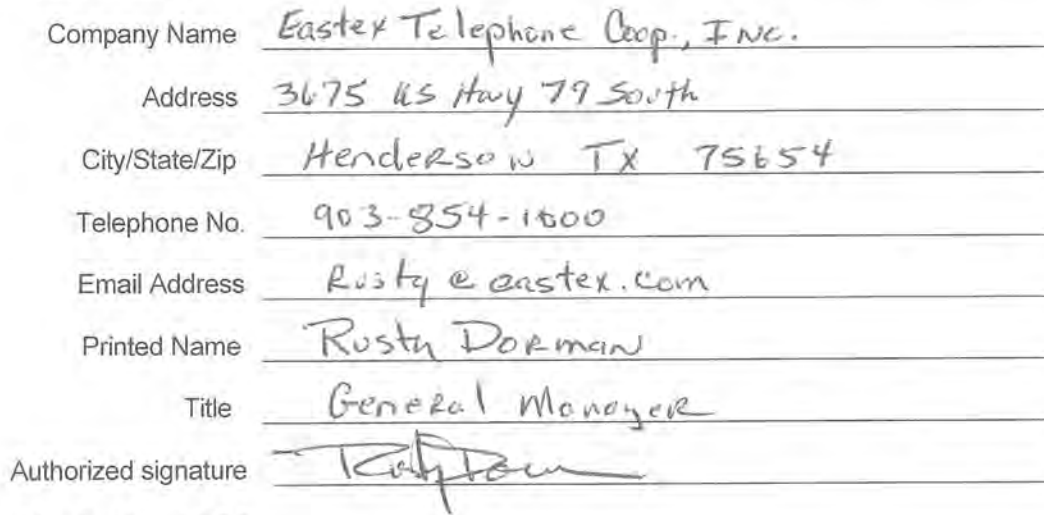 Company Name Eastex Telephone Coop., Inc.
Address 3675 US Hwy 79 South
City/State/Zip Henderson TX 75654
Telephone No. 903-854-1000
Email Address Rusty@eastex.com
Printed Name Rusty Dorman
Title General Manager
Authorized signature